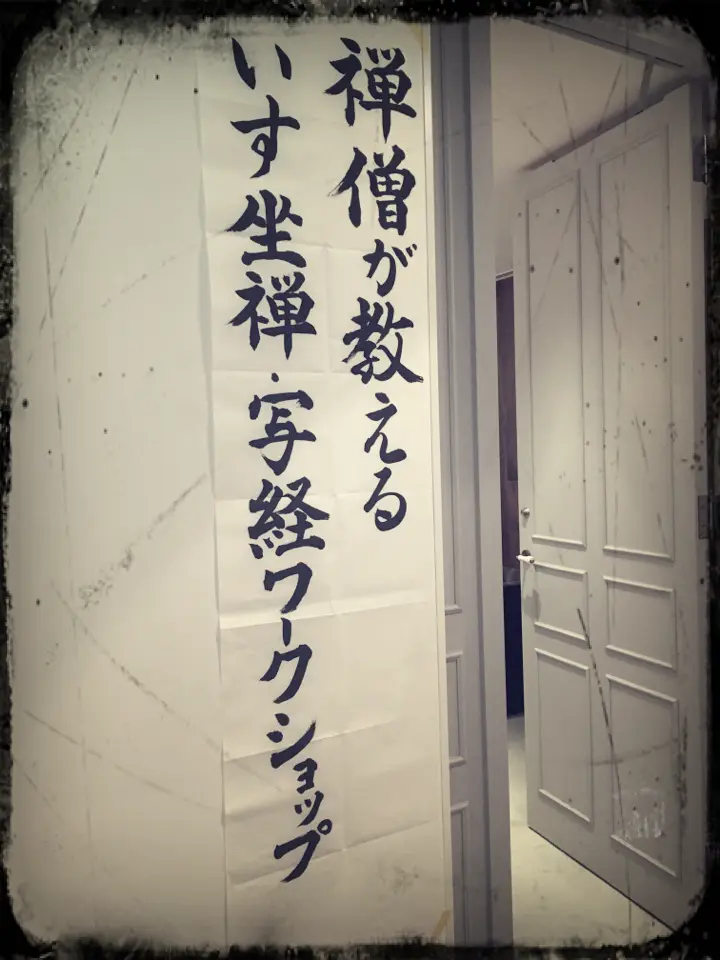 禅僧が教える
いす坐禅・写経ワークショップ